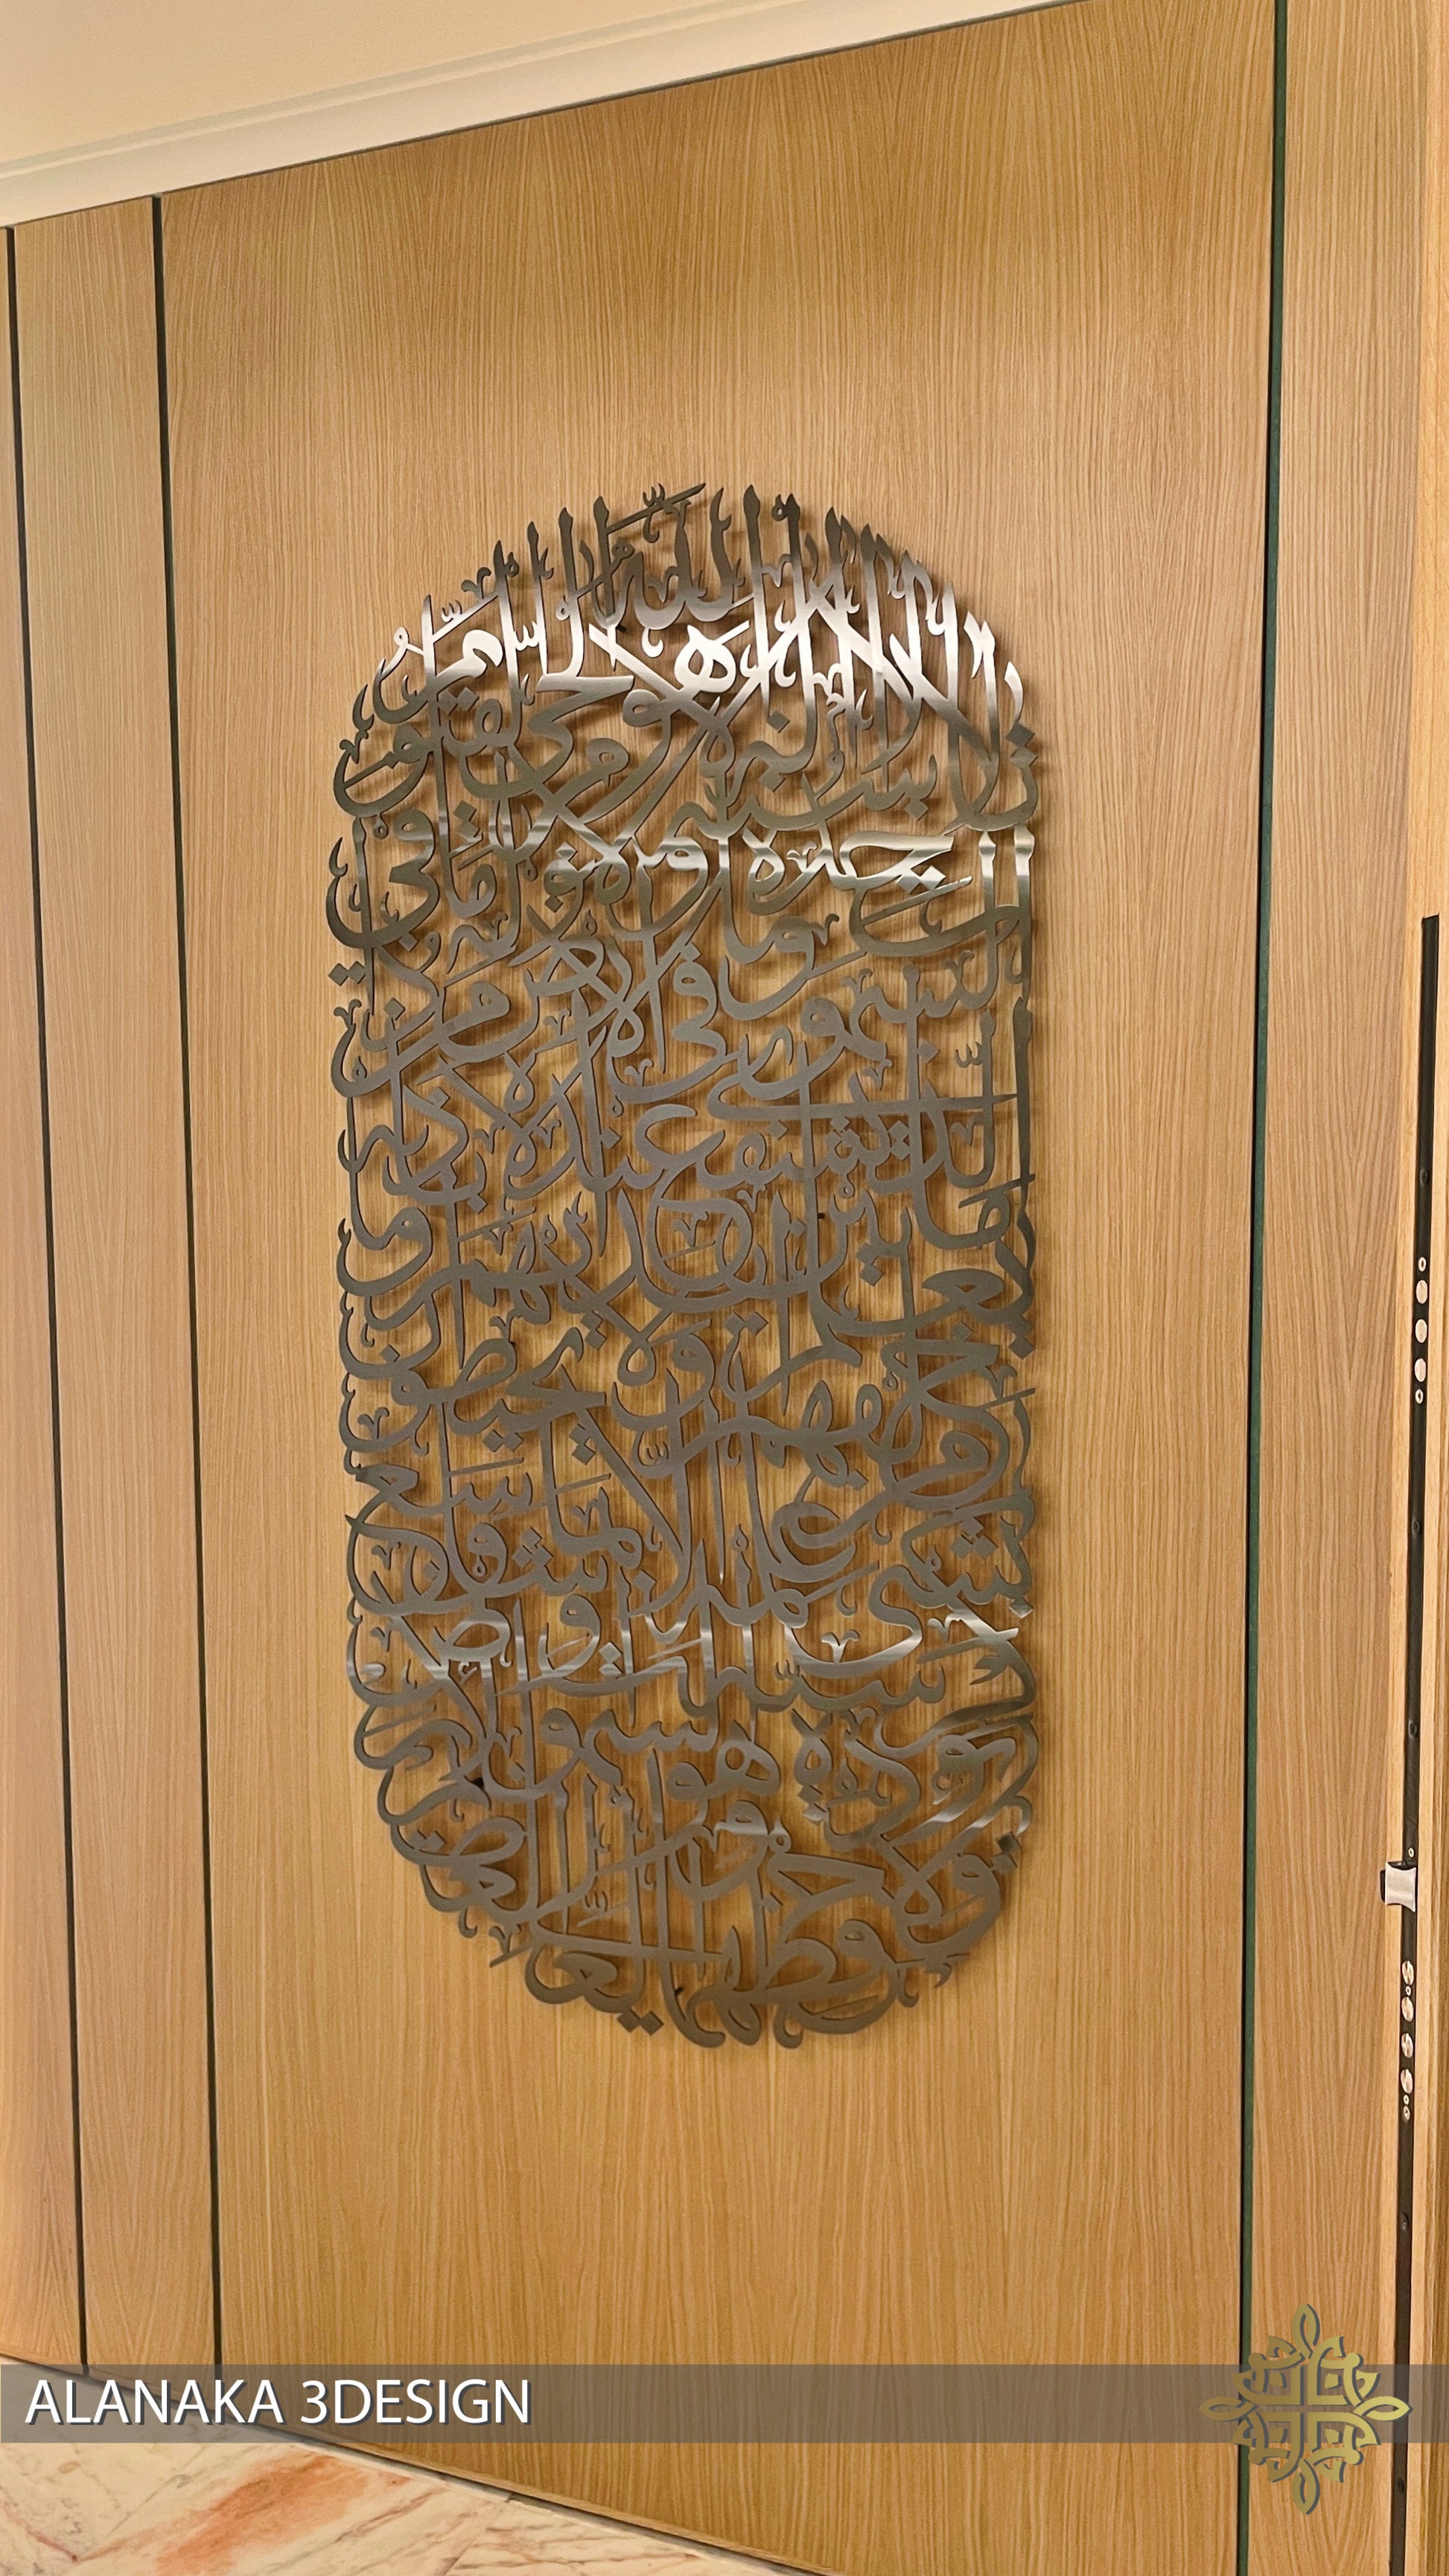 الله لا إله إلا هو الحي القيوم
لا تأخذه سنة ولا نوم له ما في
السموت وما في الارض من
ذا الذي يشفع عنده الا باذنه
يعلم ما بين ايديهم وما
خلفهم ولا يحيطون
بشيء من علمه الا بما شاء وسع
كرسيه السموت والارض
ولا يؤده حفظهما وهو العلي العظيم
ALANAKA 3DESIGN